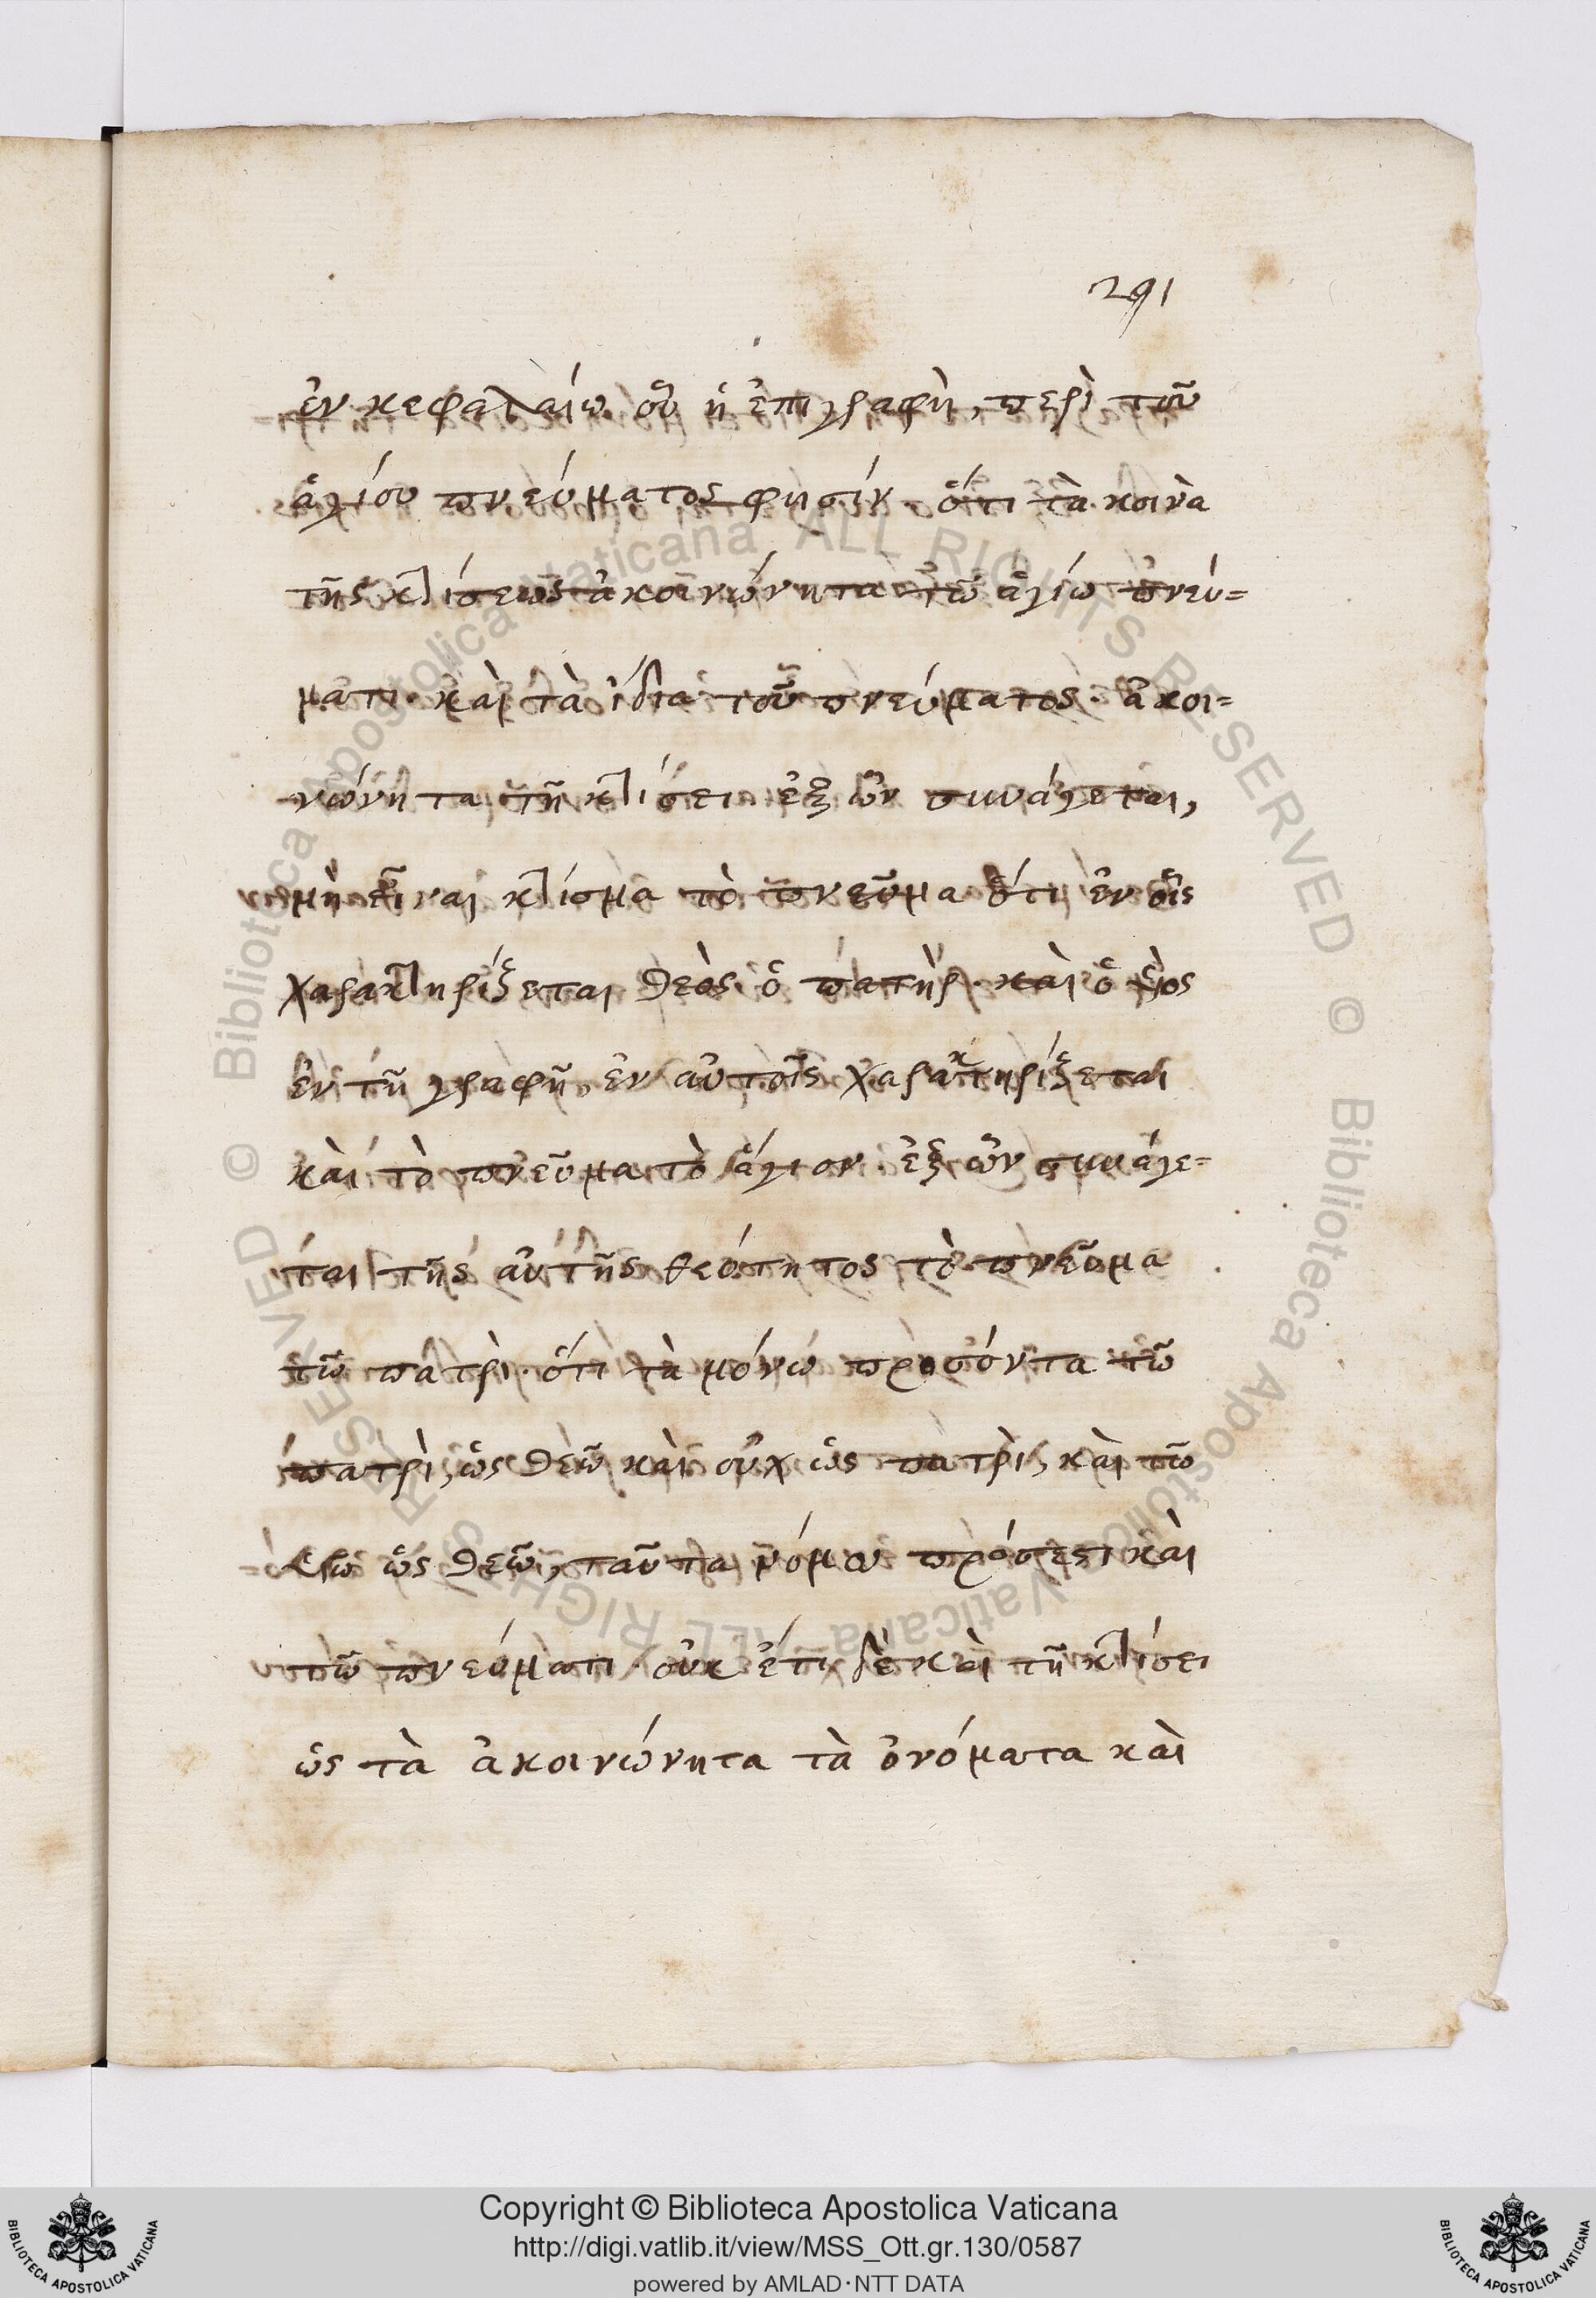 291
ἐν κεφαλαίω οὗ ἡ ἐπιγραφὴ, περὶ τοῦ
ἁγίου πνεύματος φησίν· ὅτι τὰ κοινὰ
τῆς κτίσεως ἀκοινώνητα τῶ ἁγίω πνεύ=
ματι· καὶ τὰ ἴδια τοῦ πνεύματος· ἀκοι=
νώνητα τῆ κτίσει· ἐξ ὧν συνάγεται,
μὴ εἶναι κτίσμα τὸ πνεῦμα· ὅτι ἐν οἷς
χαρακτηρίζεται θεὸς ὁ πατὴρ· καὶ ὁ υἱὸς
ἐν τῆ γραφῆ, ἐν αὐτοῖς χαρακτηρίζεται
καὶ τὸ πνεῦμα τὸ ἅγιον· ἐξ ὧν συνάγε=
ται τῆς αὐτῆς θεότητος τὸ πνεῦμα
τῶ πατρὶ· ὅτι τὰ μόνω προσόντα τῶ
πατρὶ, ὡς θεῶ καὶ οὐχ ὡς πατρὶ, καὶ τῶ
υἱῶ ὡς θεῶ, ταῦτα μόμω πρόσεστι καὶ
τῶ πνεύματι· οὐκ ἔτι δὲ καὶ τῆ κτίσει
ὡς τὰ ἀκοινώνητα τὰ ὀνόματα καὶ
© Biblioteca Apostolica Vaticana ALL RIGHTS RESERVED © Biblioteca Apostolica Vaticana ALL RIGHTS RESERVED
Copyright © Biblioteca Apostolica Vaticana
http://digi.vatlib.it/view/MSS_Ott.gr.130/0587
powered by AMLAD·NTT DATA
BIBLIOTECA APOSTOLICA VATICANA
BIBLIOTECA APOSTOLICA VATICANA